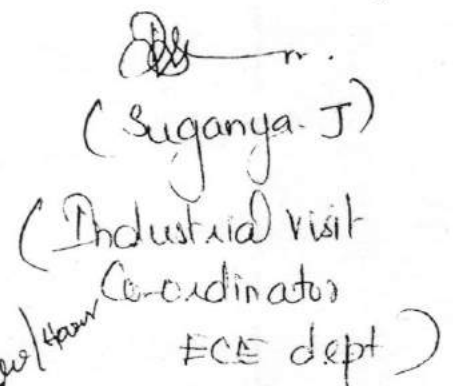 (Suganya. J)
(Industrial visit
Co-ordinator
ECE dept)